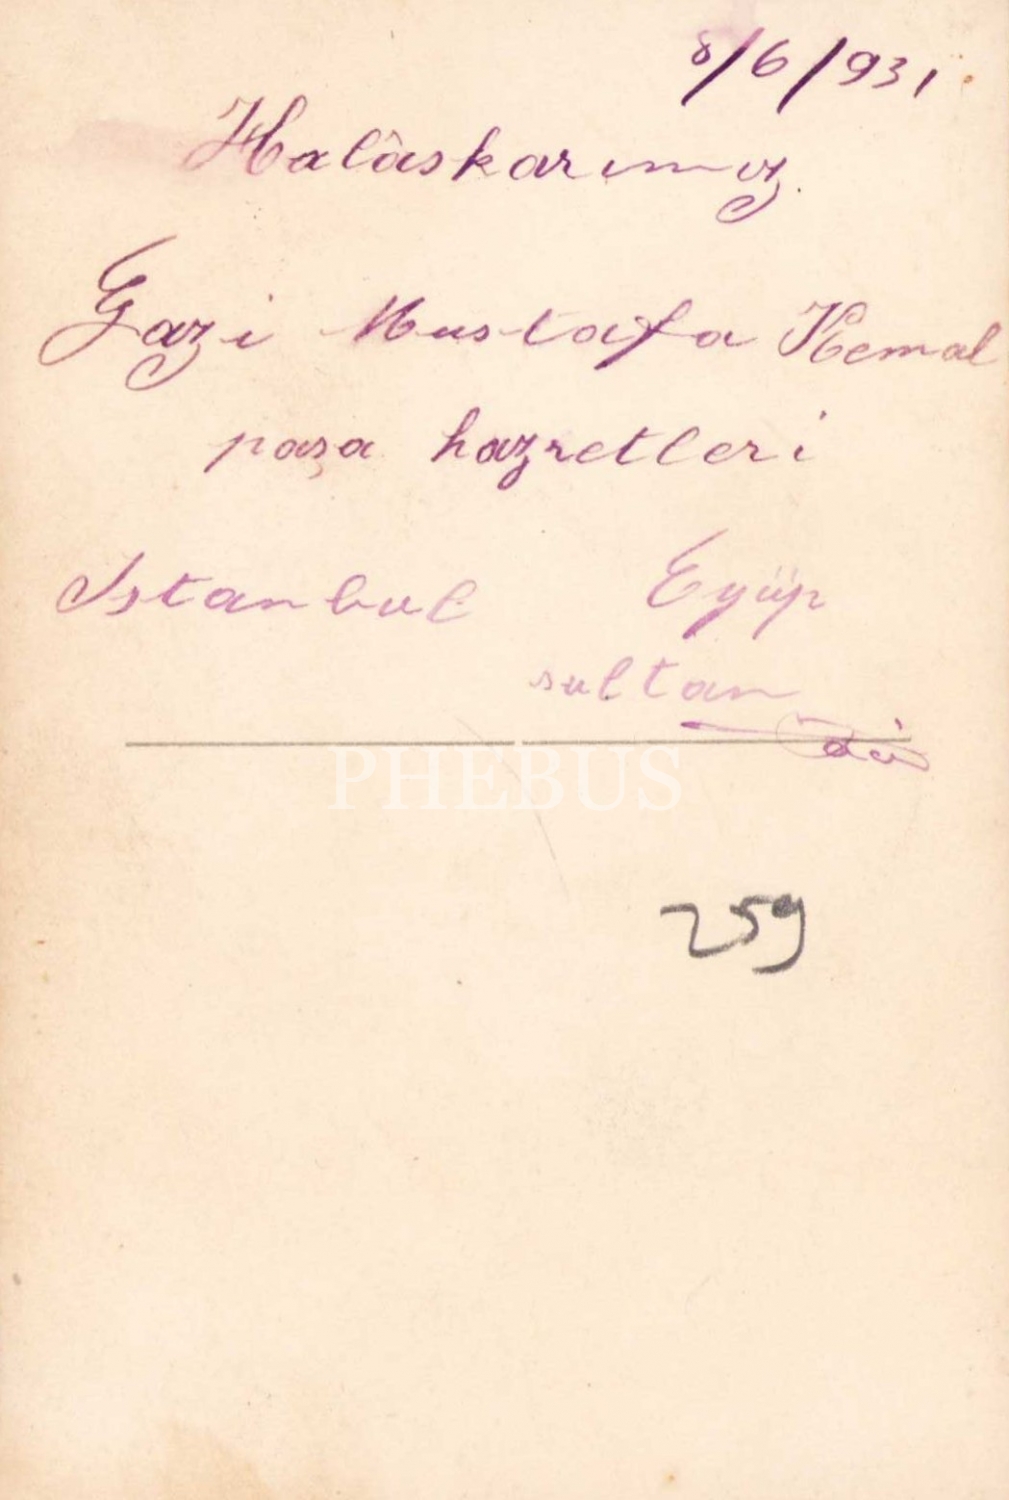 8/6/931
Halâskarımız
Gazi Mustafa Kemal
paşa hazretleri
Istanbul Eyüp
sultan
PHEBUS
259